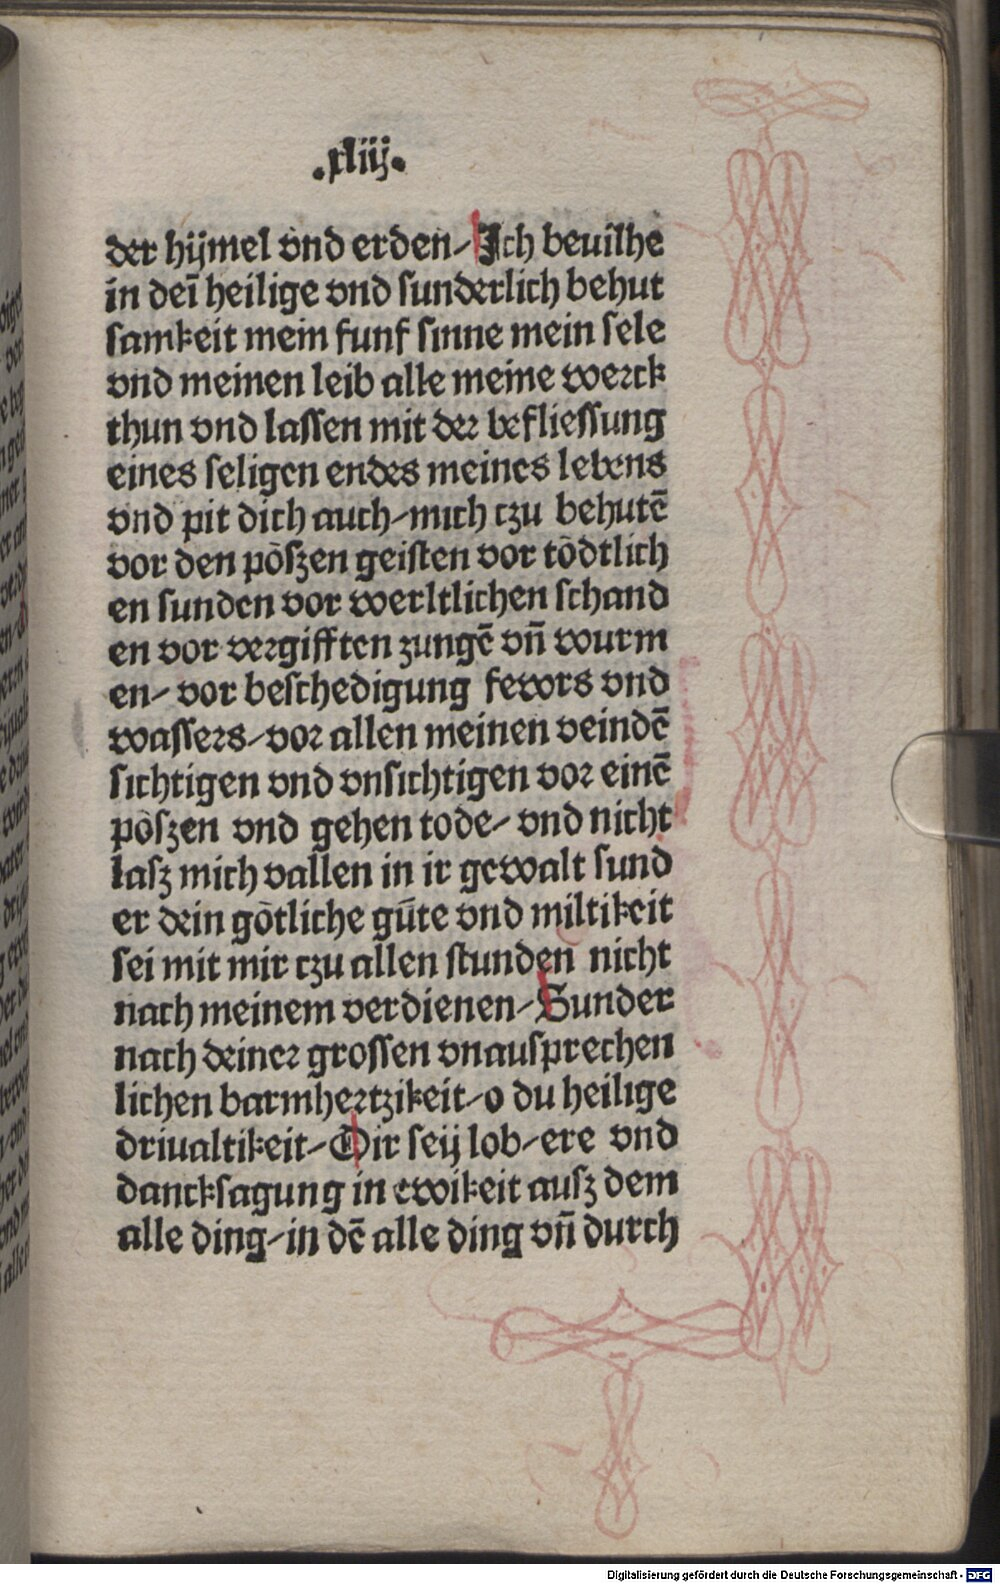 .xliij.
der hijmel vnd erden⸗ Ich beuilhe
in deī heilige vnd sunderlich behut
samkeit mein funf sinne mein sele
vnd meinen leib alle meine werck
thun vnd lassen mit der befliessung
eines seligen endes meines lebens
vnd pit dich auch⸗mich tzu behutē
vor den pōszen geisten vor tōdtlich
en sunden vor werltlichen schand
en vor vergifften zungē vn̄ wurm
en⸗ vor beschedigung fewrs vnd
wassers⸗vor allen meinen veindē
sichtigen vnd vnsichtigen vor einē
pōszen vnd gehen tode⸗ vnd nicht
lasz mich vallen in ir gewalt sund
er dein gōtliche gūte vnd miltikeit
sei mit mir tzu allen stunden nicht
nach meinem verdienen⸗Sunder
nach deiner grossen vnausprechen
lichen barmhertzikeit⸗o du heilige
driualtikeit⸗Dir seij lob⸗ere vnd
dancksagung in ewikeit ausz dem
alle ding⸗in dē alle ding vn̄ durch
Digitalisierung gefördert durch die Deutsche Forschungsgemeinschaft - DFG